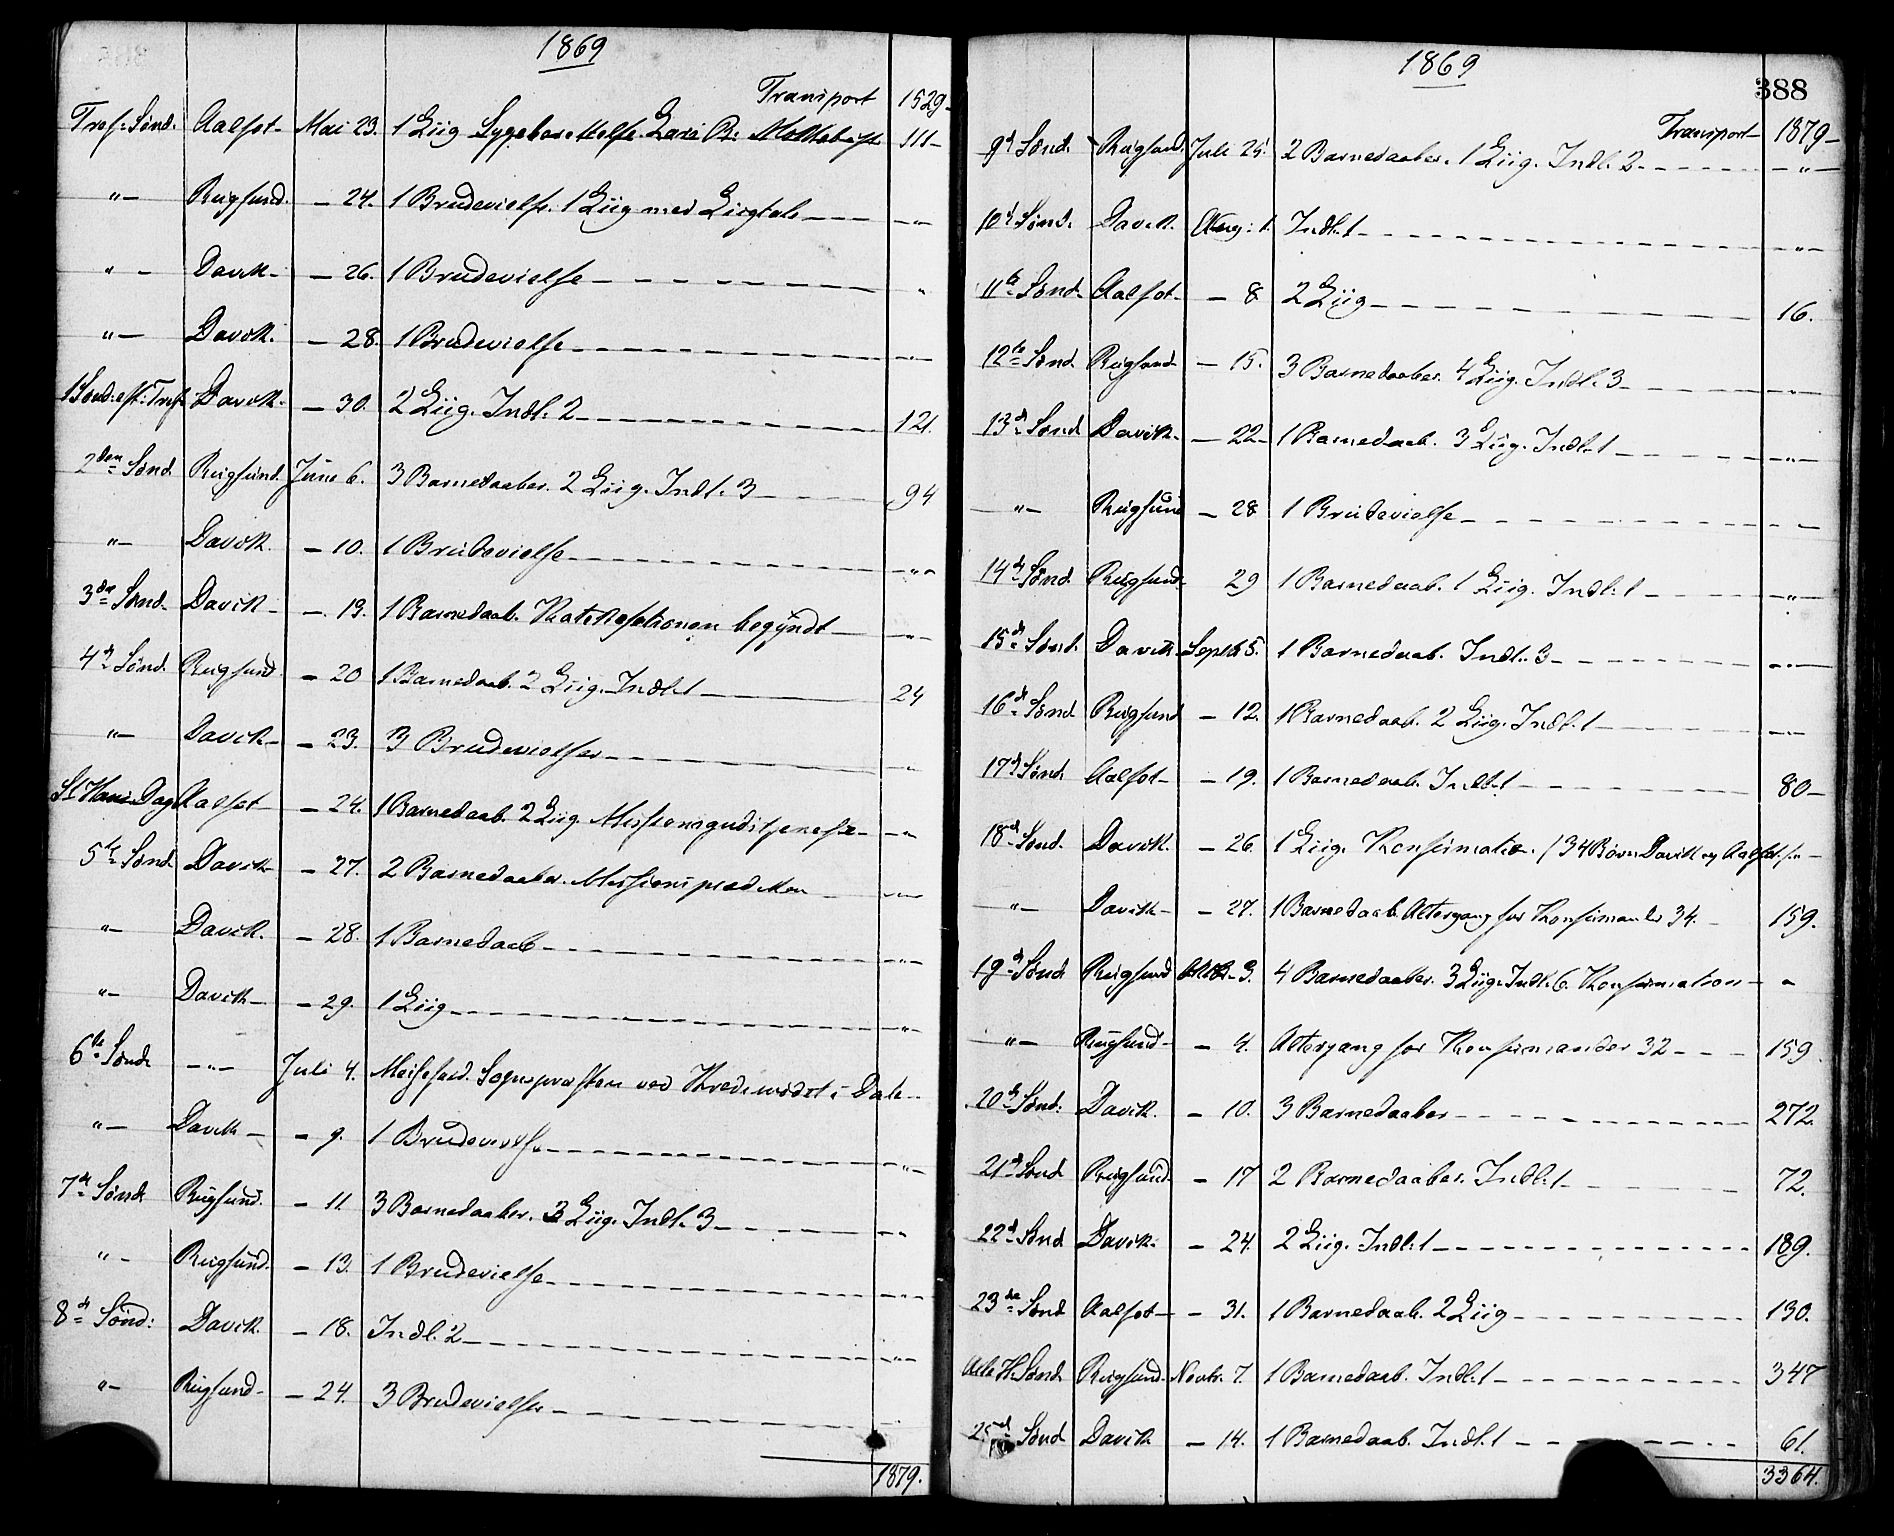 1869
Transport 1529-
Tref: Sønd. Aalfot- Mai 23. 1 Liig Sygeberettelse 111-
"- Rugsund. - 24. 1 Brudevielse. 1 Liig med Liigtale - "
" - Davik- - 26. 1 Brudevielse - "
"- Davik. - 28. 1 Brudevielse - "
1 Sønd. eft: Tref. Davik- - 30. 2 Liig. Indl. 2 - 121.
2den Sønd Rugsund. Juni 6. 3 Barnedaaber. 2 Liig. Indl. 3 - 94
"- Davik. - 10. 1 Brudevielse - "
3die Sønd- Davik- - 13. 1 Barnedaab. Katekesationen begyndt - "
4de Sønd. Rugsund. - 20 1 Barnedaab. 2 Liig. Indl. 1 - 24
"- Davik- - 23. 3 Brudevielser - "
St Hans Dag Aalfot- - 24. 1 Barnedaab. 2 Liig. Missionsgudstjeneste - "
5te Sønd. Davik- - 27. 2 Barnedaaber. Missionsprædiken - "
"- Davik. - 28. 1 Barnedaab - "
"- Davik- - 29. 1 Liig - "
6te Sønd. - " - Juli 4. Messefald. Sognepræsten ved Kredsmødet i Dale -
"- Davik- - 9. 1 Brudevielse - "
7de Sønd. Rugsund. - 11 3 Barnedaaber. 3 Liig. Indl. 3 - "
"- Rugsund. - 13. 1 Brudevielse - "
8de Sønd: Davik. - 18. Indl. 2 - "
"- Rugsund- - 24. 3 Brudevielser -
1879.
1869
388
Transport 1879-
9de Sønd. Rugsund. Juli 25. 2 Barnedaaber. 1 Liig. Indl. 2 - "
10de Sønd. Davik. Aug: 1. Indl. 1 - "
11te Sønd. Aalfot- - 8 2 Liig - 16.
12te Sønd Rugsund - 15. 3 Barnedaaber. 4 Liig. Indl. 3 - "
13de Sønd Davik- - 22- 1 Barnedaab. 3 Liig. Indl. 1 - "
"- Rugsund - 28 1 Brudevielse - "
14de Sønd Rugsund. 29 1 Barnedaab. 1 Liig. Indl. 1 - "
15de Sønd. Davik- Septb 5. 1 Barnedaab. Indl. 3 - "
16de Sønd Rugsund - 12. 1 Barnedaab. 2 Liig. Indl. 1 - "
17de Sønd Aalfot- - 19. 1 Barnedaab. Indl. 1 - 80-
18de Sønd. Davik. - 26. 1 Liig. Konfirmation. (34 Børn Davik og Aalfot
"- Davik- - 27. 1 Barnedaab. Altergang for Konfirmander 34. - 159.
19de Sønd Rugsund Oktb- 3. 4 Barnedaaber. 3 Liig. Indl. 6. Konfirmation - "
"- Rugsund- - 4. Altergang for Konfirmander 32 - 159.
20de Sønd: Davik. - 10. 3 Barnedaaber - 272.
21de Sønd Rugsund. - 17 2 Barnedaaber. Indl. 1 - 72.
22de Sønd Davik. - 24. 2 Liig. Indl. 1 - 189.
23de Sønd Aalfot- - 31. 1 Barnedaab. 2 Liig - 130.
Alle H. Sønd. Rugsund. Novbr. 7. 1 Barnedaab. Indl. 1 - 347
25de Sønd Davik - 14. 1 Barnedaab. Indl. 1 - 61.
3364.